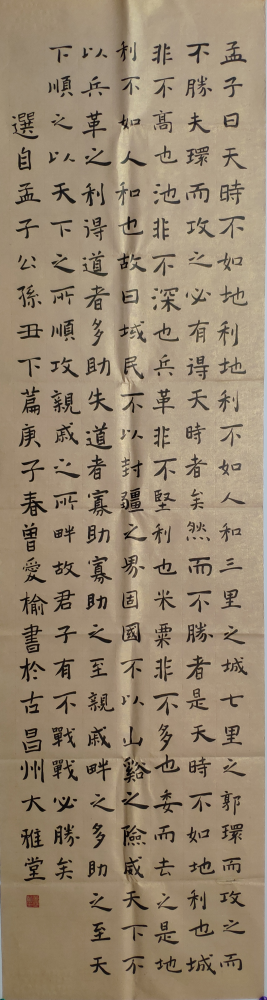 孟子曰天時不如地利地利不如人和三里之城七里之郭環而攻之而
不勝夫環而攻之必有得天時者矣然而不勝者是天時不如地利也城
非不髙也池非不深也兵革非不堅利也米粟非不多也委而去之是地
利不如人和也故曰域民不以封疆之界固國不以山谿之險威天下不
以兵革之利得道者多助失道者寡助寡助之至親戚畔之多助之至天
下順之以天下之所順攻親戚之所畔故君子有不戰戰必勝矣
選自孟子公孫丑下篇庚子春曾愛榆書於古昌州大雅堂